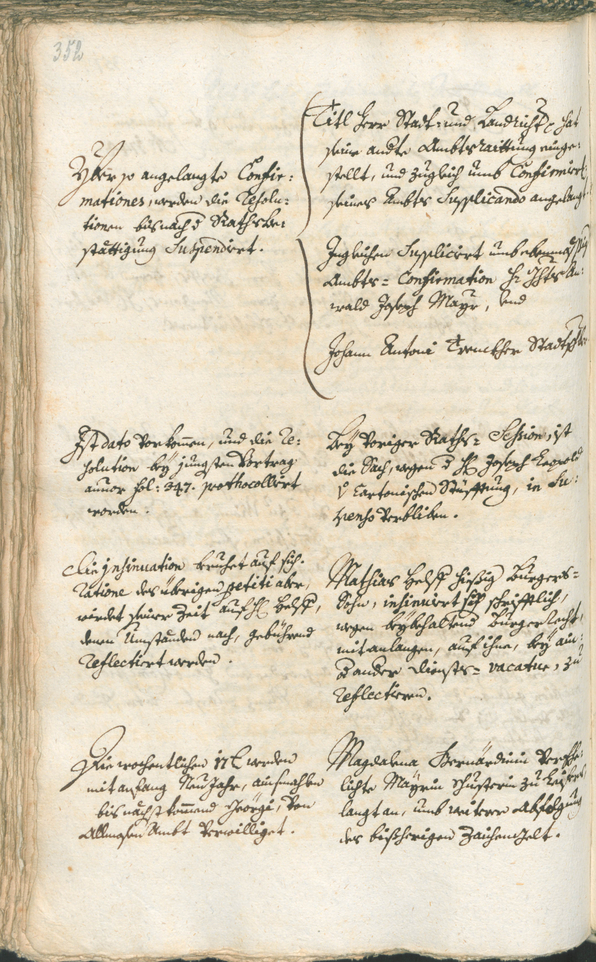 352
Yber so angelangte Confir:
mationes, werden die Resolu-
tionen bis nach d Rathsbe-
stättigung Suspendirt.
Titl Herr Stadt: und Landricht: hat
seine andte Ambtsraittung einge-
stellt, und zugleich umb Confirmirung
seines Ambts Supplicando angelangt
Ingleichen Supplicirt umb
Ambts= Confirmation H:
wald Joseph Mayr, und
Johann Antoni Trenckher
Ist dato vorkommen, und die Re-
solution bey jüngsten Vortrag
annor fol: 347. prothocollirt
worden.
Bey voriger Raths= Session, ist
die Sach, wegen d H: Joseph Leopold
v Cartonischen Stüfftung, in Su:
spenso verbliben.
Die insinuation beruhet auf sich.
Ratione des übrigen petiti aber,
würdet seiner Zeit auf H:
denen Umständen nach, gebührend
reflectirt werden.
Mathias hießig burgers=
Sohn, insinuirt sich schrifftlich,
wegen beybehaltend burger Recht,
mit anlangen, auf ihne, bey ain:
od ander Diensts= vacatur, zu
reflectiren.
Die wochentlichen 17 x werden
mit anfang Neu Jahr, anfangend
bis nächstkommend Georgi, von
Allmosen Ambt verwilliget.
Magdalena Bernardinin verehe:
lichte Mayrin Schusterin zu
langt an, umb weitere abfolgung
des bißherigen